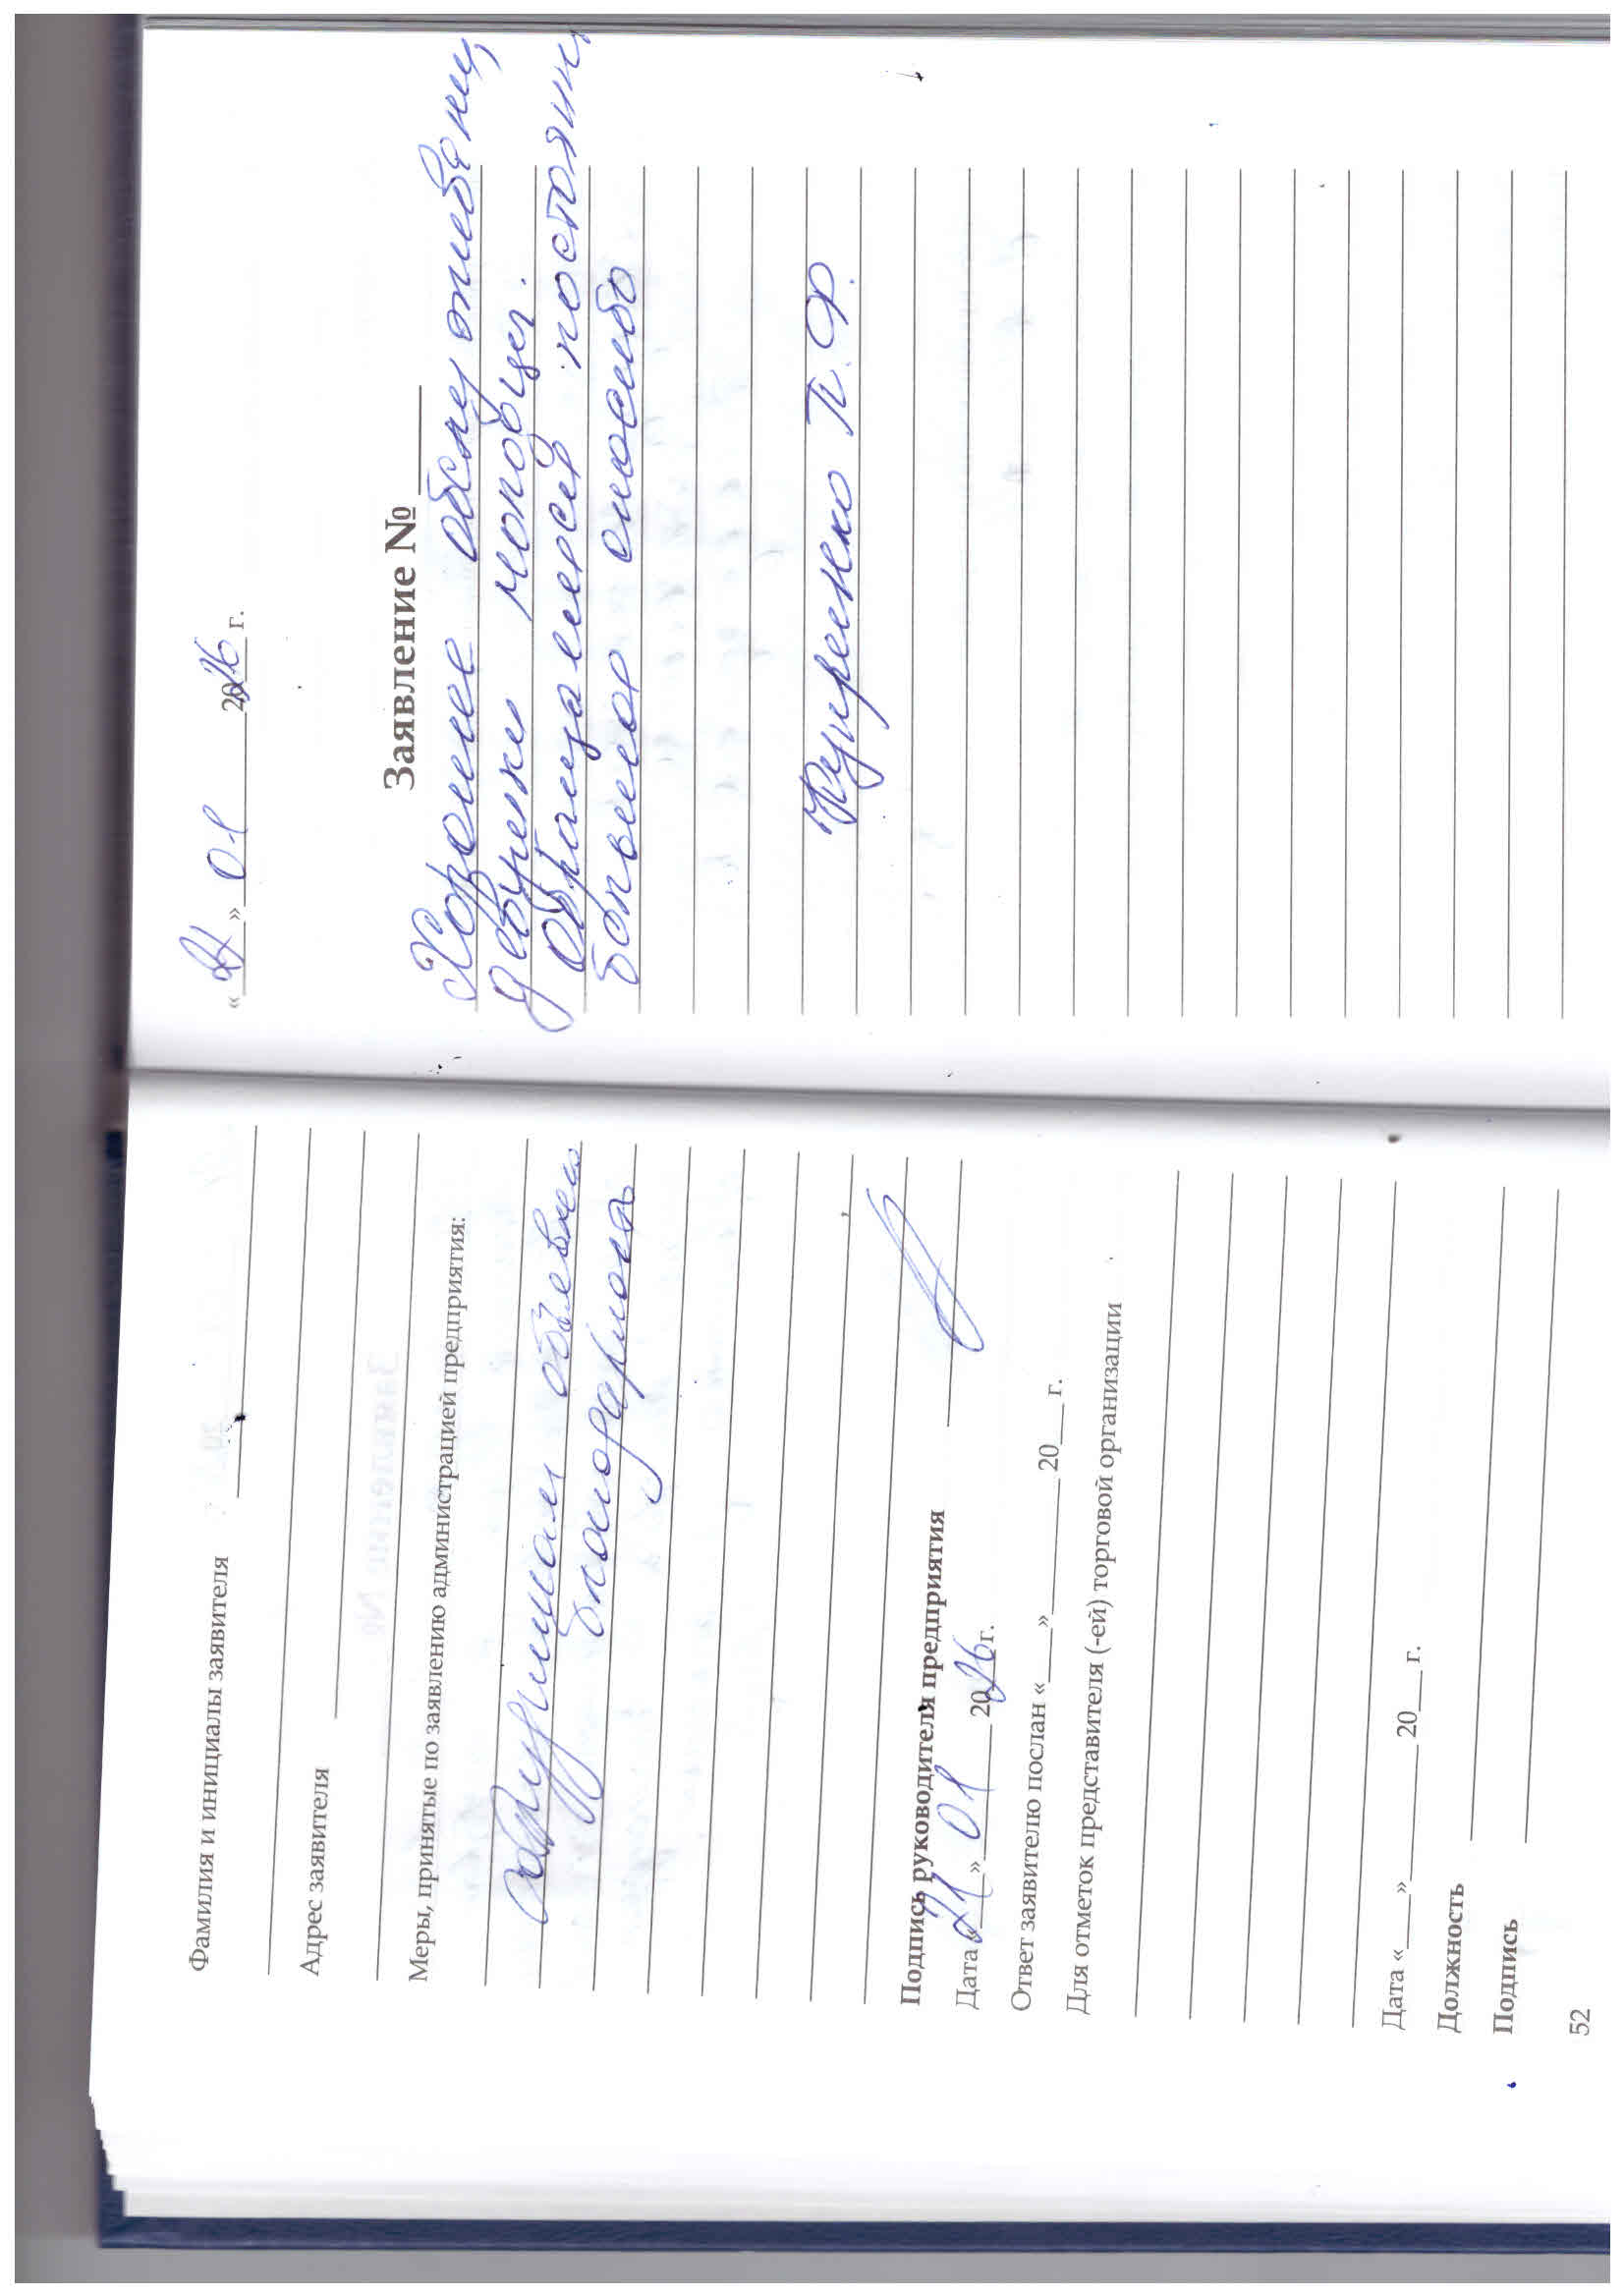 Фамилия и инициалы заявителя
Адрес заявителя
Меры, принятые по заявлению администрацией предприятия:
сотрудникам объявлена
благодарность
Подпись руководителя предприятия
Дата «21» 01 2026г.
Ответ заявителю послан «___» ______ 20___ г.
Для отметок представителя (-ей) торговой организации
Дата «___» ______ 20___ г.
Должность
Подпись
52
«21» 01 2026 г.
Заявление №
Хорошее обслуживание,
девушки молодцы.
Обращаемся постоянно
большое спасибо
Куприенко П.Ф.